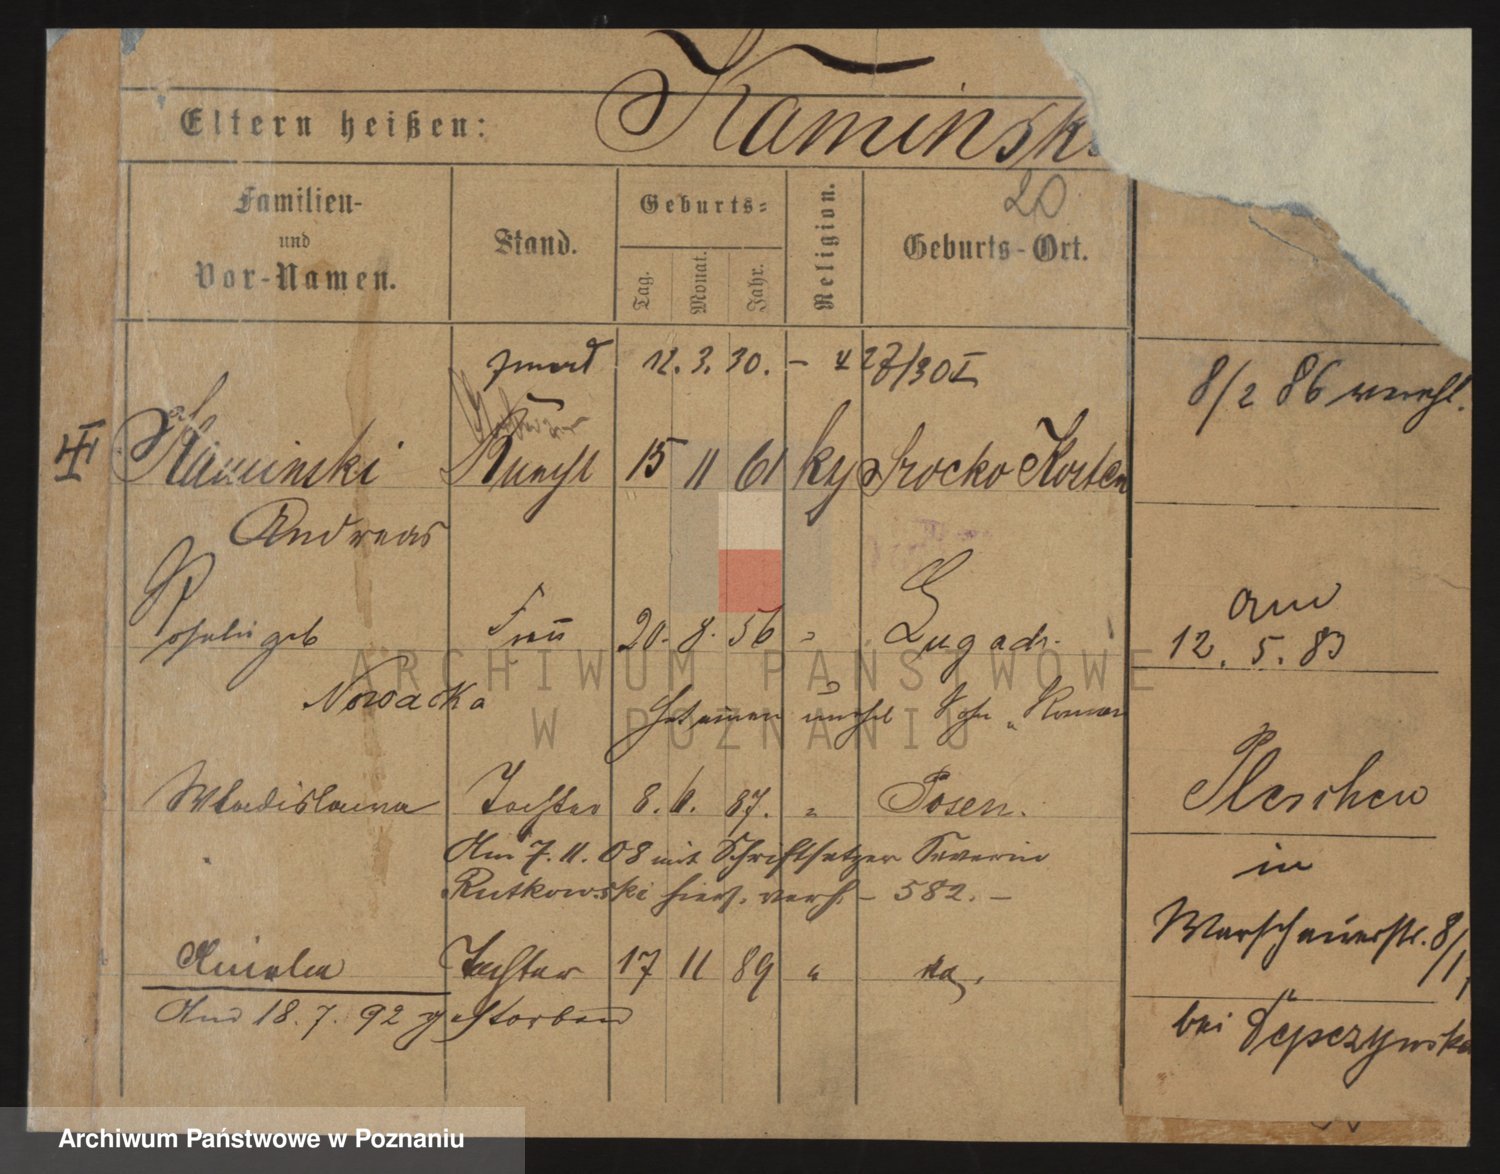 Eltern heißen:
Kaminsk
20
Familien-
und
Vor-Namen.
Stand.
Geburts-
Tag.
Monat.
Jahr.
Religion.
Geburts-Ort.
12. 3. 30. – 427/30 I
8/2 86
III
Kaminski
15 11 61 Srocko Kosten
Andreas
Rosalie geb
Frau 20. 8. 56 "
am
12. 5. 83
Nowacka
hat einen unehel Sohn „Roman
Wladislawa Tochter 8. 6. 87. " Posen.
Pleschen
Am 7. 11. 08 mit Schriftsetzer Severin
Rutkowski hier verh. – 582. –
in
Warschauerstr. 8/1
Aniela Tochter 17 11 89 "
Am 18. 7. 92 gestorben
bei
ARCHIWUM PAŃSTWOWE
W POZNANIU
Archiwum Państwowe w Poznaniu